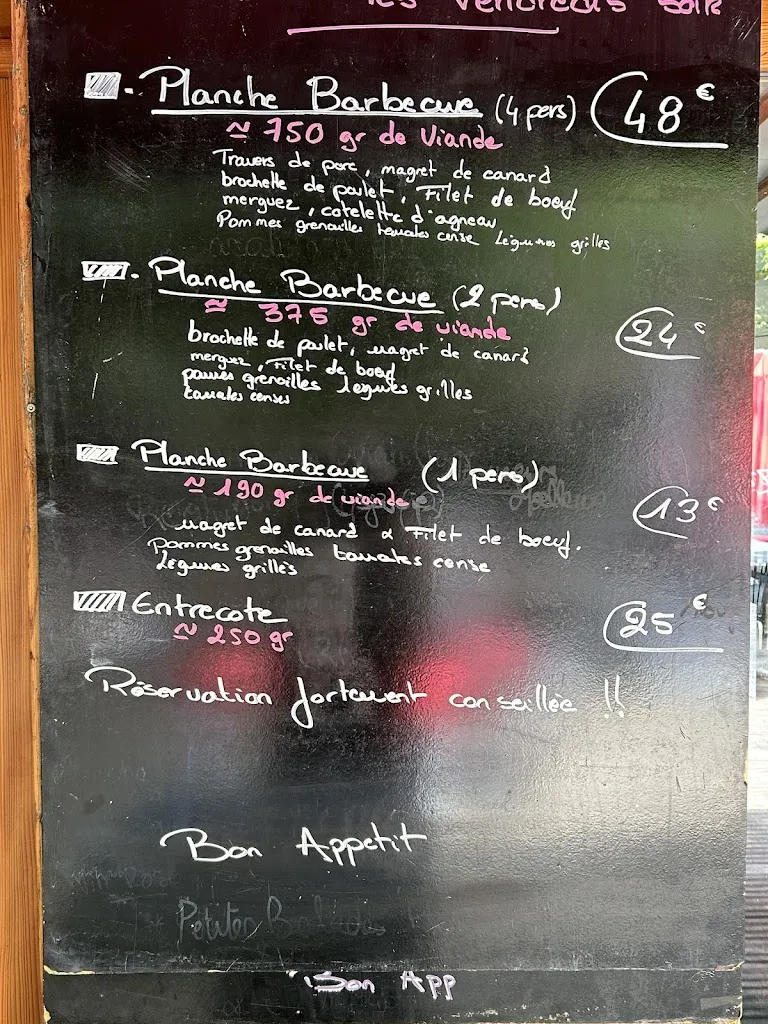 les vendredis soir
Planche Barbecue (4 pers) 48 €
≈ 750 gr de Viande
Travers de porc, magret de canard
brochette de poulet, Filet de boeuf
merguez, cotelette d'agneau
Pommes grenailles tomates cerise Légumes grilles
Planche Barbecue (2 pers)
≈ 375 gr de viande 24 €
brochette de poulet, magret de canard
merguez, Filet de boeuf
pommes grenailles legumes grilles
tomates cerises
Planche Barbecue (1 pers)
≈ 190 gr de viande 13 €
magret de canard Filet de boeuf.
Pommes grenailles tomates cerise
Légumes grilles
Entrecote 25 €
≈ 250 gr
Réservation fortement conseillée !!
Bon Appetit
Petites
Bon App